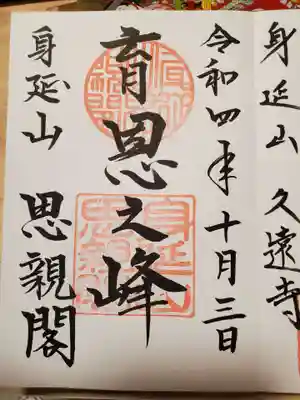 身延山 久遠寺
令和四年十月三日
育恩之峰
身延山 思親閣